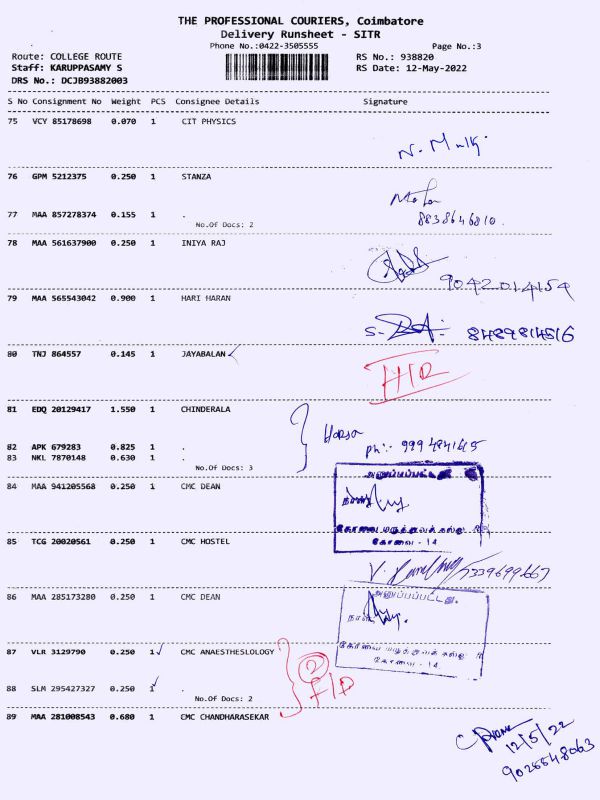 THE PROFESSIONAL COURIERS, Coimbatore
Delivery Runsheet - SITR
Phone No.:0422-3505555 Page No.:3
Route: COLLEGE ROUTE RS No.: 938820
Staff: KARUPPASAMY S RS Date: 12-May-2022
DRS No.: DCJB93882003
S No Consignment No Weight PCS Consignee Details Signature
75 VCY 85178698 0.070 1 CIT PHYSICS
76 GPM 5212375 0.250 1 STANZA
77 MAA 857278374 0.155 1 .
8838646810.
No.Of Docs: 2
78 MAA 561637900 0.250 1 INIYA RAJ
9042014154
79 MAA 565543042 0.900 1 HARI HARAN
8489814516
80 TNJ 864557 0.145 1 JAYABALAN
81 EDQ 20129417 1.550 1 CHINDERALA
82 APK 679283 0.825 1 .
83 NKL 7870148 0.630 1 .
No.Of Docs: 3
அனுப்பப்பட்டது
84 MAA 941205568 0.250 1 CMC DEAN
நாள்
கோவை மருத்துவக் கல்லூரி
கோவை - 14
85 TCG 20020561 0.250 1 CMC HOSTEL
அனுப்பப்பட்டது.
86 MAA 285173280 0.250 1 CMC DEAN
நாள்
கோவை மருத்துவக் கல்லூரி
கோவை - 14.
87 VLR 3129790 0.250 1 CMC ANAESTHESLOLOGY
2
88 SLM 295427327 0.250 1 .
No.Of Docs: 2
89 MAA 281008543 0.680 1 CMC CHANDHARASEKAR
12/5/22
9026548063